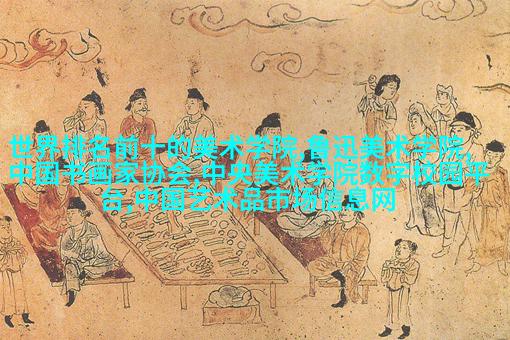 世界排名前十的美术学院,鲁迅美术学院,
中国书画家协会,中央美术学院数字校园平
台,中国艺术品市场信息网